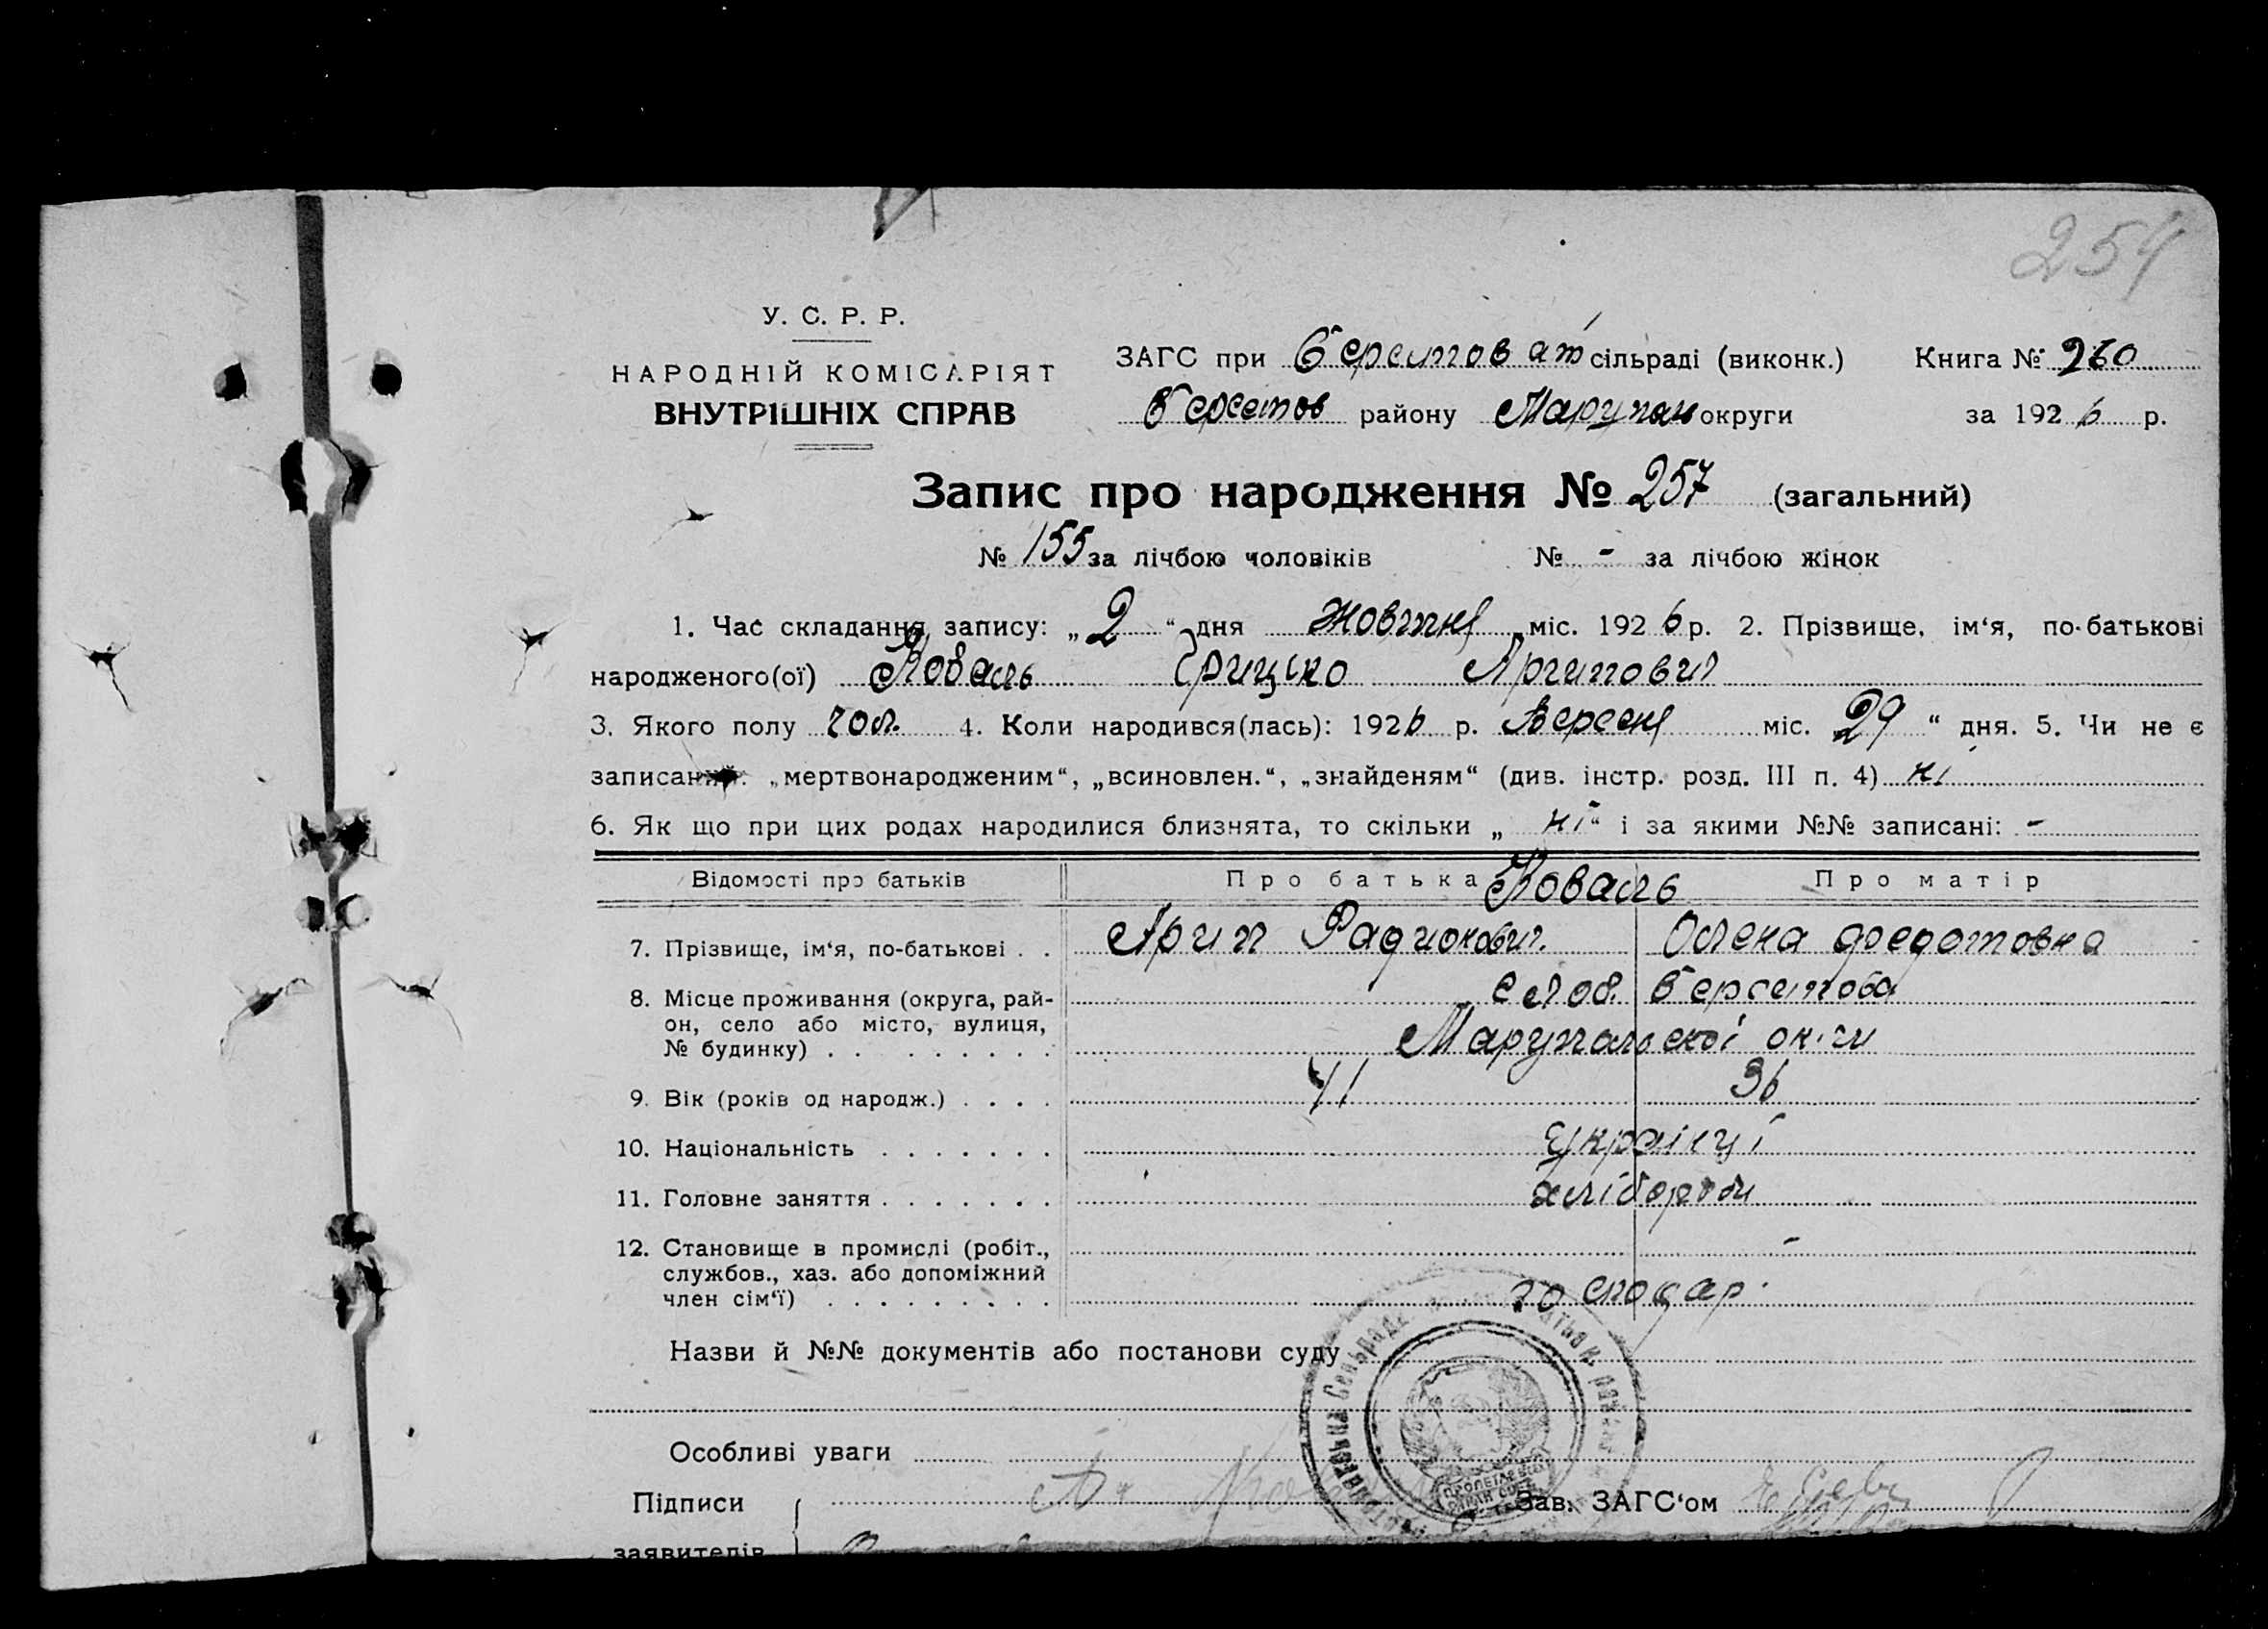 254
У. С. Р. Р.
НАРОДНІЙ КОМІСАРІЯТ
ВНУТРІШНІХ СПРАВ
ЗАГС при Берестоват сільраді (виконк.) Книга № 260
Берестов району Маруπαл округи за 1926 р.
Запис про народження № 257 (загальний)
№ 155 за лічбою чоловіків № - за лічбою жінок
1. Час складання запису: „2“ дня Жовтня міс. 1926 р. 2. Прізвище, ім‘я, по-батькові
народженого(ої) Коваль Грицько Архипович
3. Якого полу чол. 4. Коли народився(лась): 1926 р. Вересня міс. 29“ дня. 5. Чи не є
записаний: „мертвонародженим“, „всиновлен.“, „знайденям“ (див. інстр. розд. III п. 4) ні
6. Як що при цих родах народилися близнята, то скільки „ні“ і за якими №№ записані: -
Відомості про батьків Про батька Коваль Про матір
7. Прізвище, ім‘я, по-батькові . . Архип Радионович. Олена Федотовна
8. Місце проживання (округа, рай- с Слоб. Берестова
он, село або місто, вулиця,
№ будинку) . . Марупольської ок-ги
9. Вік (років од народж.) . . . . 41 36
10. Національність . . . . . . . Українці
11. Головне заняття . . . . . . . хлібороби
12. Становище в промислі (робіт., -
службов., хаз. або допоміжний
член сім‘ї) . . . . . . . . . господар.
Назви й №№ документів або постанови суду
Особливі уваги
Підписи Зав. ЗАГС‘ом
заявителів